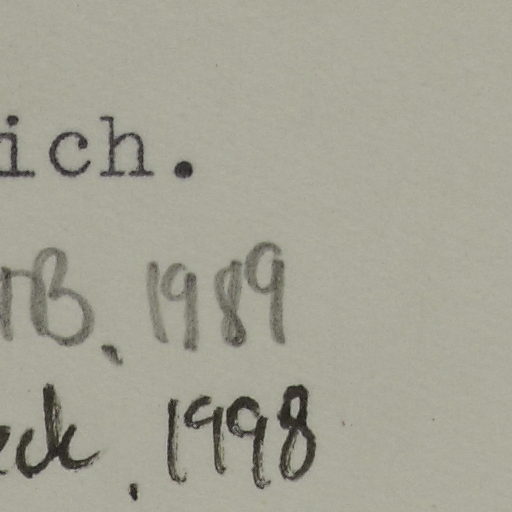 ich.
B. 1989
eck. 1998